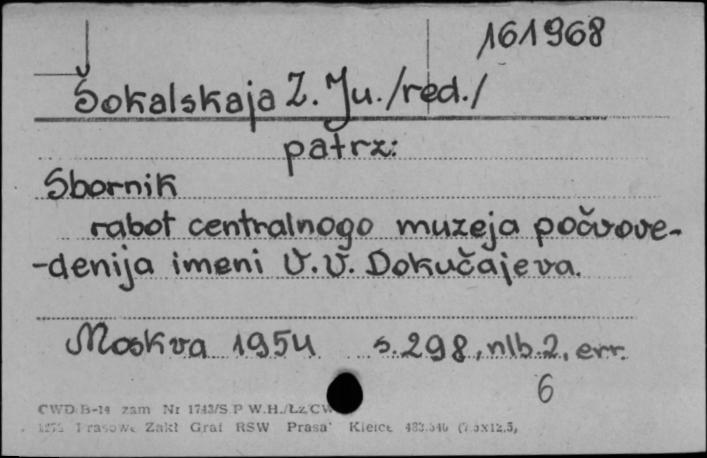 161968
Šokalskaja Z. Ju. /red./
patrz:
Sbornik
rabot centralnogo muzeja počvove-
-denija imeni V.V. Dokučajeva.
Moskva 1954 s. 298, nlb. 2, err.
6
CWD B-14 zam Nr 1743/S P W.H./Łz/CW
Prasowe Zakł Graf RSW Prasa" Kielce